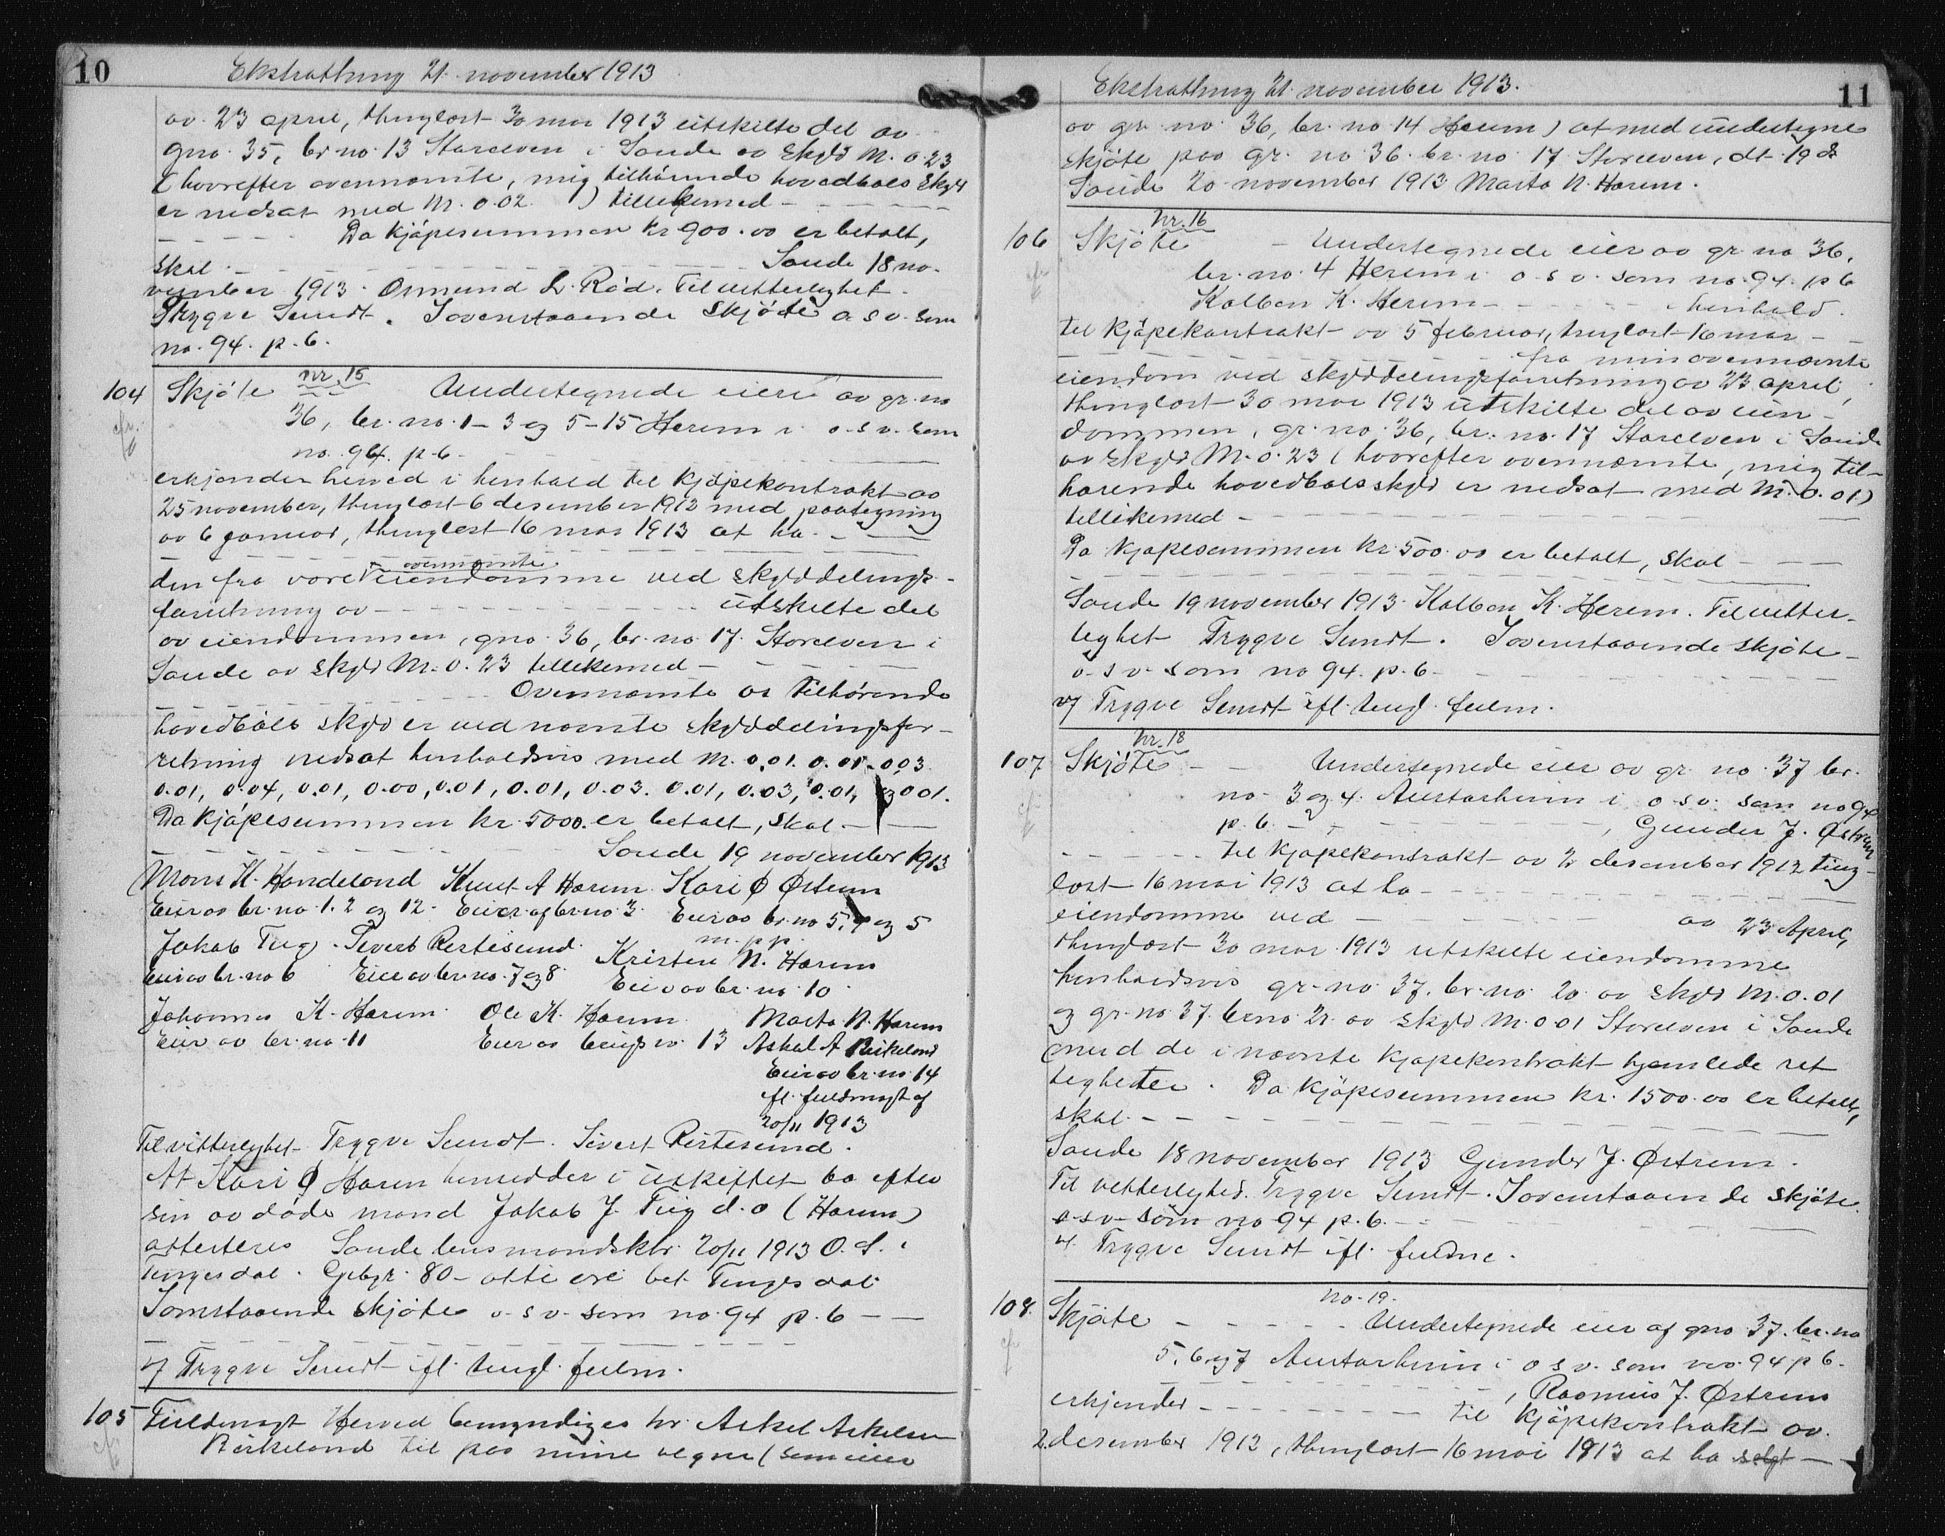 10
Ekstratthing 21. november 1913
av 23 april, thinglæst 30 mai 1913 utskilte del av
gno. 35, br. no. 13 Storelven i Saude av skyld M. 0.23
(hvorefter ovennævnte, mig tilhørende hovedbøls skyld
er nedsat med M. 0.02 ) tillikemed - - - - -
- - - - - Da kjøpesummen kr 900.00 er betalt,
skal - - - - - Saude 18 no-
vember 1913. Osmund L. Rød. Til vitterlighet
Trygve Sundt. Fovenstaaende skjøte o. s. v. som
no. 94. p. 6.
104 Skjøte Nr. 15 Undertegnede eiere av gr. no
cfr. 36, br. no. 1-3 og 5-15 Herem i o. s. v. som
no. 94. p. 6 -
erkjender herved i henhold til kjøpekontrakt av
25 november, thinglæst 6 desember 1912 med paategning
av 6 januar, thinglæst 16 mai 1913 at ha - -
ovennævnte
den fra vore eiendomme ved skylddelings-
forretning av - - - - - utskilte del
av eiendommen, gno. 36, br. no. 17. Storelven i
Saude av skyld M. 0. 23 tillikemed - - - -
- - - - - Ovennævnte os tilhørende
hovedbøls skyld er ved nævnte skylddelingsfor-
retning nedsat henholdsvis med M. 0,01. 0.01. 0.03.
0.01, 0.04, 0.01, 0.00, 0.01, 0.01, 0.03. 0.01, 0.03, 0.01, og 0.01.
Da kjøpesummen kr. 5000. er betalt, skal - - -
- - - - - Saude 19 november 1913
Mons K. Handeland Knut A Harem Kari Ø Østrem
Eier av br. no. 1. 2 og 12. Eier af br. no 3. Eier av br. no 5, 9 og 5
m. p. p.
Jakob Tug. Sivert Rertesund. Kristen N. Harem
Eier av br. no 6 Eier av br. no. 7 og 8 Eier av br. no. 10
Johannes K. Harem. Ole K. Harem Marta N. Harem
Eier av br. no. 11 Eier av 13 Askel A Birkeland
Eier av br. no. 14
ifl. fuldmagt af
20/11 1913
Til vitterlighet Trygve Sundt. Sivert Rertesund.
At Kari Ø Harem hensidder i uskiftet bo efter
sin avdøde mand Jakob J. Tug d. o (Harem)
attesteres Saude lensmandsktr. 20/11 1913 O. S.
Tengesdal. Gebyr. 80 - otti øre bet. Tengesdal
Fovenstaaende skjøte o. s. v. som no. 94 p. 6 - -
- - - - -
v/ Trygve Sundt ifl. tingl. fulm.
105 Fuldmagt Herved bemyndiges hr. Askel Askelsen
cfr Birkeland til paa mine vegne (som eier
11
Ekstratthing 21. november 1913.
av gr. no. 36, br. no 14 Herem) at med undertegne
skjøte paa gr. no 36. br. no 17 Storelven, dt. 19 ds
Saude 20 november 1913 Marta N. Harem.
106 Skjøte Nr. 16 - Undertegnede eier av gr. no 36,
cfr br. no. 4 Herem i o. s. v. som no. 94. p 6
Kolben K. Herem - - - - - i henhold
til kjøpekontrakt av 5 februar, tinglæst 16 mai - -
- - - - - fra min ovennævnte
eiendom ved skylddelingsforretning av 23 april,
thinglæst 30 mai 1913 utskilte del av eien-
dommen, gr. no. 36, br. no. 17 Storelven i Saude
av skyld M. 0. 23 (hvorefter ovennævnte, mig til-
hørende hovedbølsskyld er nedsat med M. 0. 01)
tillikemed - - - - -
Da kjøpesummen kr. 500. 00 er betalt, skal - - -
- - - - -
Saude 19 november 1913. Kolben K. Herem. Til vitter-
lighet Trygve Sundt. Fovenstaaende skjøte -
o. s. v. som no 94. p. 6 - - - - -
v/ Trygve Sundt ifl. tingl. fulm.
107 Skjøte Nr. 18 - - Undertegnede eier av gr. no. 37 br.
cfr no. 3 og 4. Austarheim i o. s. v. som no 94
p. 6. - - - - - , Gunder J. Østrem
- - - - - til kjøpekontrakt av 2 desember 1912 ting-
læst 16 mai 1913 at ha - - - - -
eiendomme ved - - - - - av 23 April,
thinglæst 30 mai 1913 utskilte eiendomme
henholdsvis gr. no. 37. br. no. 20. av skyld M. 0. 01
og gr. no 37. br no. 21. av skyld M. 0 01 Storelven i Saude
(med de i nævnte kjøpekontrakt hjemlede ret
tigheter. Da kjøpesummen kr. 1500. 00 er betalt,
skal - - - - -
Saude 18 november 1913 Gunder J. Østrem.
Til vitterlighed. Trygve Sundt. Fovenstaaende skjøte
o. s. v. som no 94 p. 6. - - - - -
v/ Trygve Sundt ifl. fuldm.
108. Skjøte No. 19. - - - - - Undertegnede eier af gno. 37. br. no
cfr 5, 6 og 7 Austarheim i o s. v. som no. 94 p 6 -
- - - - - , Rasmus J. Østrem
erkjender - - - - - til kjøpekontrakt av
2. desember 1912, thinglæst 16 mai 1913 at ha solgt -